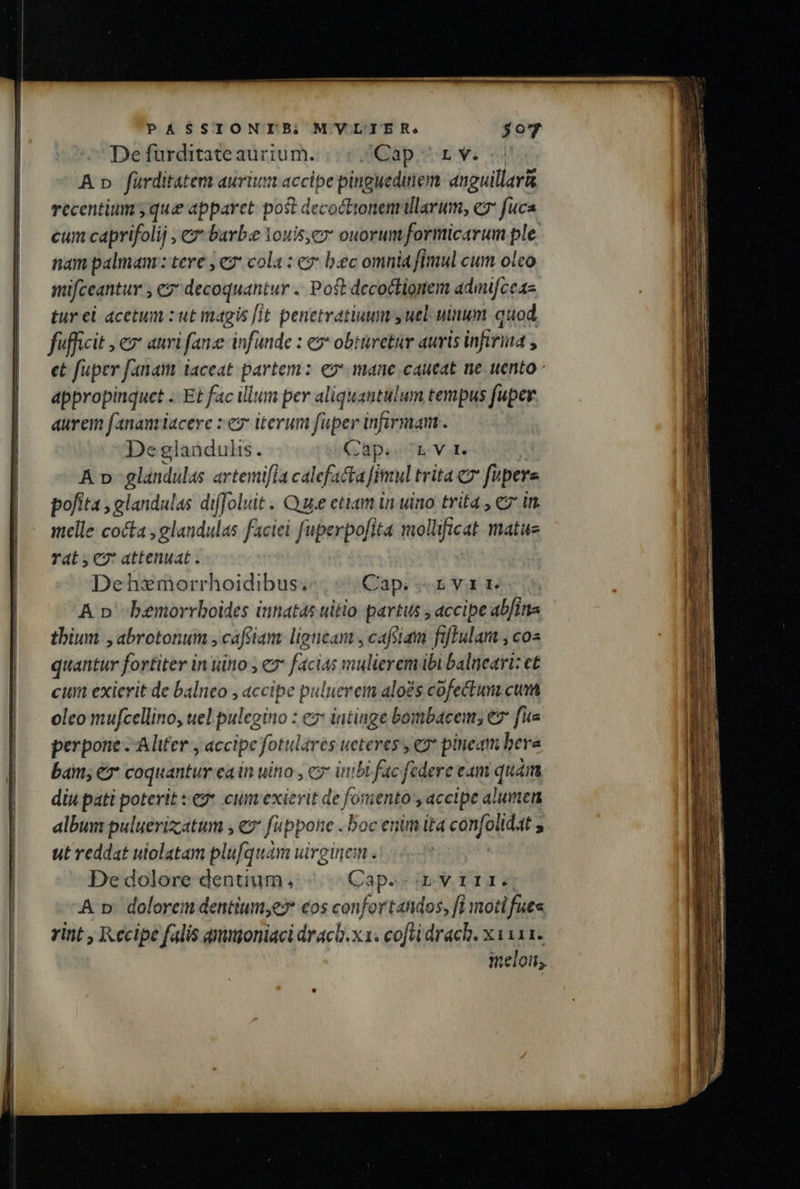 PASSIONIB. MVLIER. 507
De surditate aurium. Cap. LV.
AD surditatem aurium accipe pinguedinem anguillarũ
recentium, quæ apparet post decoctionem illarum, & succũ
cum caprifolij, & barbæ Iouis, & ouorum formicarum ple
nam palmam: tere, & cola: & hæc omnia simul cum oleo
misceantur, & decoquantur. Post decoctionem admiscea-
tur ei acetum: ut magis sit penetratiuum, uel uinum quod
sufficit, & auri sanæ infunde: & obturetur auris infirma,
et super sanam iaceat partem: & mane caueat ne uento
appropinquet. Et fac illum per aliquantulum tempus super
aurem sanam iacere: & iterum super infirmam.
De glandulis. Cap. LVI.
AD glandulas artemisia calefacta simul trita & super-
posita, glandulas dissoluit. Quæ etiam in uino trita, & in
melle cocta, glandulas faciei superposita mollificat matu-
rat, & attenuat.
De hæmorrhoidibus. Cap. LVII.
AD hæmorrhoides innatas uitio partus, accipe absin-
thium, abrotonum, cassiam ligneam, cassiam fistulam, co-
quantur fortiter in uino, & facias mulierem ibi balneari: et
cum exierit de balneo, accipe puluerem aloës cõfectum cum
oleo muscellino, uel pulegino: & intinge bombacem, & su-
perpone. Aliter, accipe fotulares ueteres, & pineam her-
bam, & coquantur ea in uino, & inibi fac sedere eam quàm
diu pati poterit: & cum exierit de fomento, accipe alumen
album puluerizatum, & suppone. hoc enim ita consolidat,
ut reddat uiolatam plusquàm uirginem.
De dolore dentium. Cap. LVIII.
AD dolorem dentium, & eos confortandos, si moti fue-
rint, Recipe salis ammoniaci drach. XI. costi drach. XIIII.
melon,